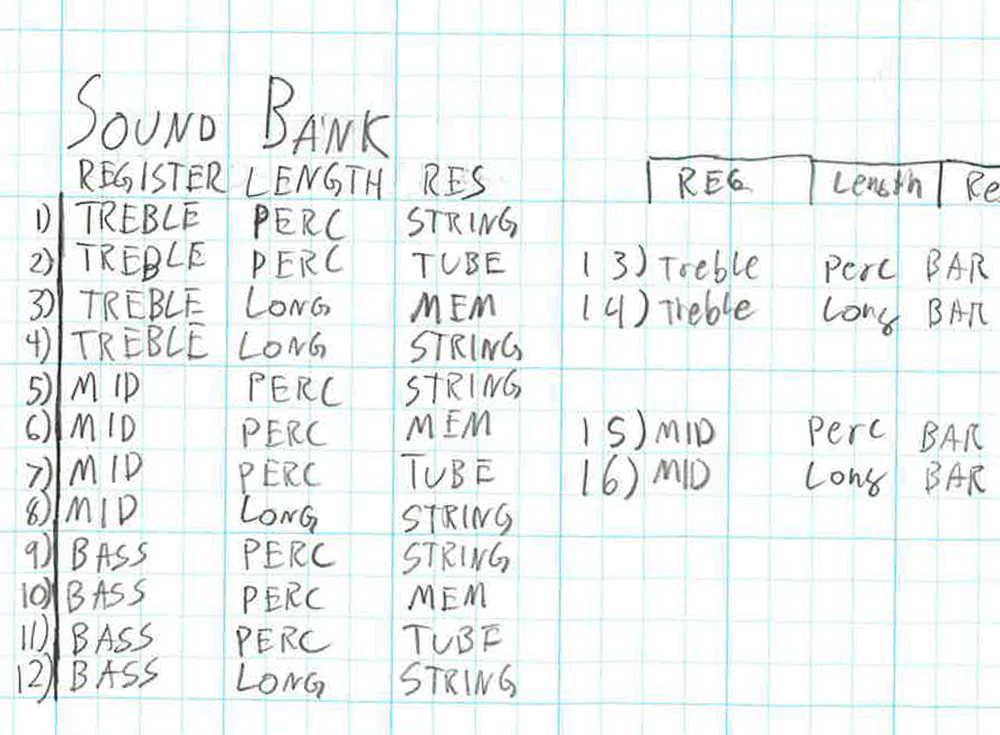 SOUND BANK
REGISTER LENGTH RES
1) TREBLE PERC STRING
2) TREBLE PERC TUBE
3) TREBLE LONG MEM
4) TREBLE LONG STRING
5) MID PERC STRING
6) MID PERC MEM
7) MID PERC TUBE
8) MID LONG STRING
9) BASS PERC STRING
10) BASS PERC MEM
11) BASS PERC TUBE
12) BASS LONG STRING
REG. Length
13) Treble Perc BAR
14) Treble Long BAR
15) MID Perc BAR
16) MID Long BAR